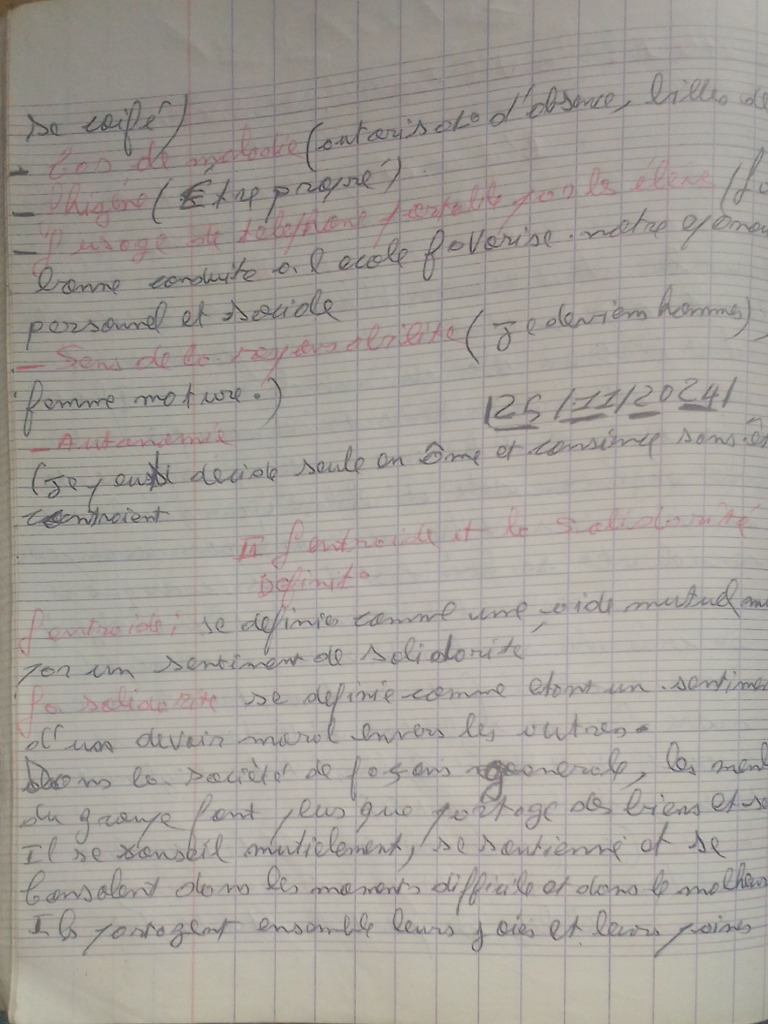 se coifé)
- Cas de maladie (autorisato d'absence, billes de
- l'higéne (Etre propre).
- l'usage de téléphone portable par les élève (la
bonne conduite a l'ecole favorise notre epanou
personnel et sociale
- Sens de la responsabilité (Je devien homme,
femme mature.)
|25/11/2024|
- Autonomie
(Je peux decide seule en âme et consince sans êt
contraient
II l'entraide et la solidarité
Definit°
l'entraide; se definie comme une aide mutuel
par un sentiment de solidarité
la solidarité se definie comme etant un sentime
d'un devoir moral envers les autres.
Dans la société de façons generale, les mem
du groupe font plus que partage des biens et se
Il se conseil mutielement, se soutienne et se
consolent dans les moments difficile et dans le malheu
Ils partagent ensemble leurs joies et leurs peines